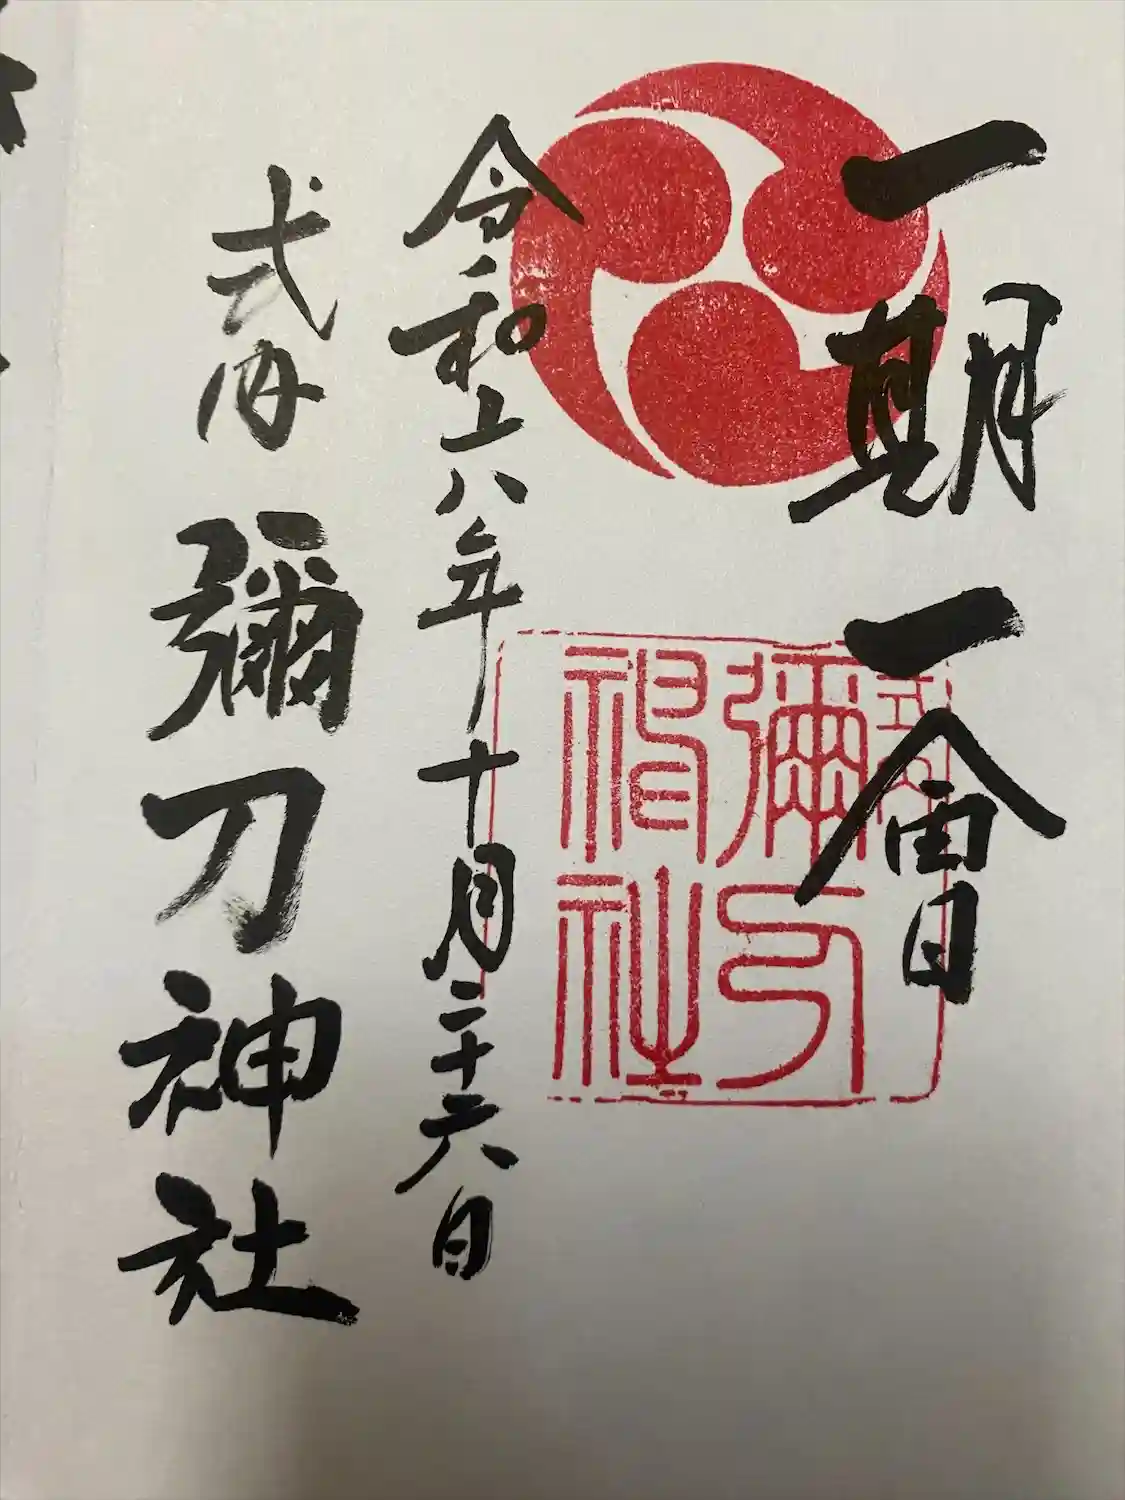 一期一會
式内
彌刀神社
令和六年十月二十六日
式内彌刀神社